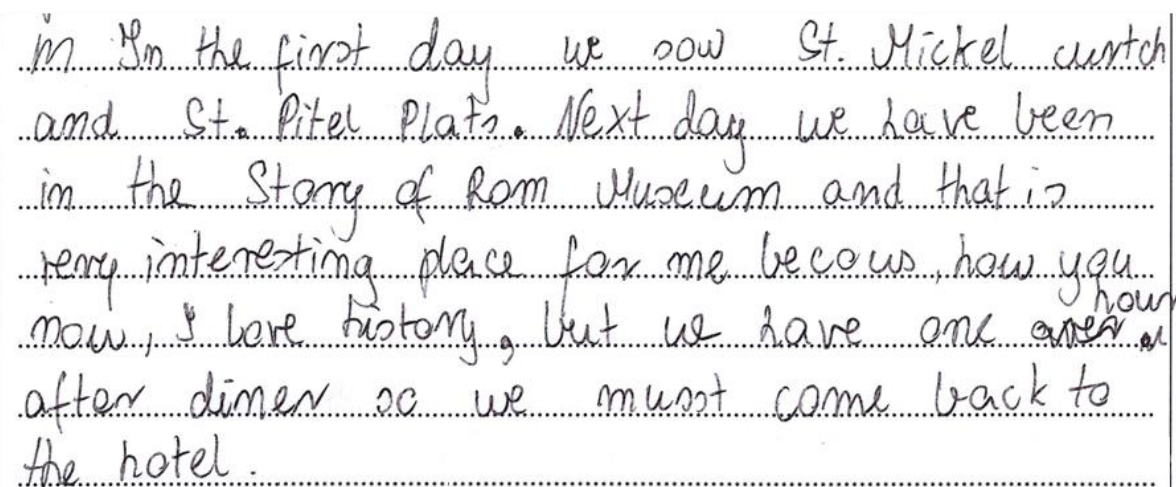 in In the first day we sow St. Mickel curtch
and St. Pitel Plats. Next day we have been
in the Story of Rom Museum and that is
very interesting place for me becous, how you
now, I love history, but we have one hour
after dimer so we musst come back to
the hotel.